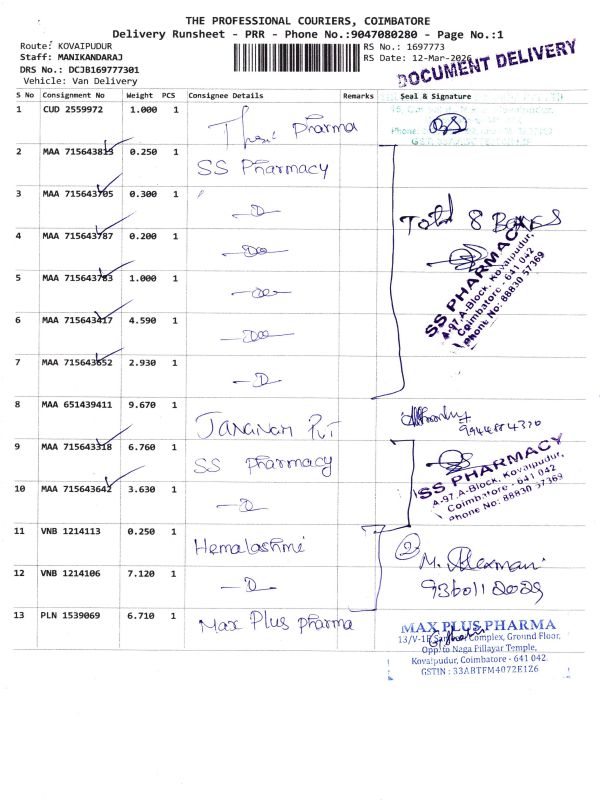 THE PROFESSIONAL COURIERS, COIMBATORE
Delivery Runsheet - PRR - Phone No.:9047080280 - Page No.:1
Route: KOVAIPUDUR
Staff: MANIKANDARAJ
DRS No.: DCJB169777301
Vehicle: Van Delivery
RS No.: 1697773
RS Date: 12-Mar-2026
DOCUMENT DELIVERY
S No Consignment No Weight PCS Consignee Details Remarks Seal & Signature
1 CUD 2559972 1.000 1 Pharma
2 MAA 715643813 0.250 1 SS Pharmacy
3 MAA 715643705 0.300 1 -D-
4 MAA 715643787 0.200 1 -Do-
Total 8 Boxes
5 MAA 715643783 1.000 1 -do-
SS PHARMACY
A-97, A-Block, Kovaipudur,
Coimbatore - 641 042
Phone No: 88830 57369
6 MAA 715643417 4.590 1 -Do-
7 MAA 715643652 2.930 1 -D-
8 MAA 651439411 9.670 1 JANANAM PVT
9944884320
9 MAA 715643318 6.760 1 SS pharmacy
SS PHARMACY
A-97, A-Block, Kovaipudur,
Coimbatore - 641 042
Phone No: 88830 57369
10 MAA 715643642 3.630 1 -D-
11 VNB 1214113 0.250 1 Hemalashmi
2
12 VNB 1214106 7.120 1 -D-
13 PLN 1539069 6.710 1 Max Plus pharma
MAX PLUS PHARMA
Complex, Ground Floor,
Opp. to Naga Pillayar Temple,
Kovaipudur, Coimbatore - 641 042.
GSTIN : 33ABTFM4072E1Z6